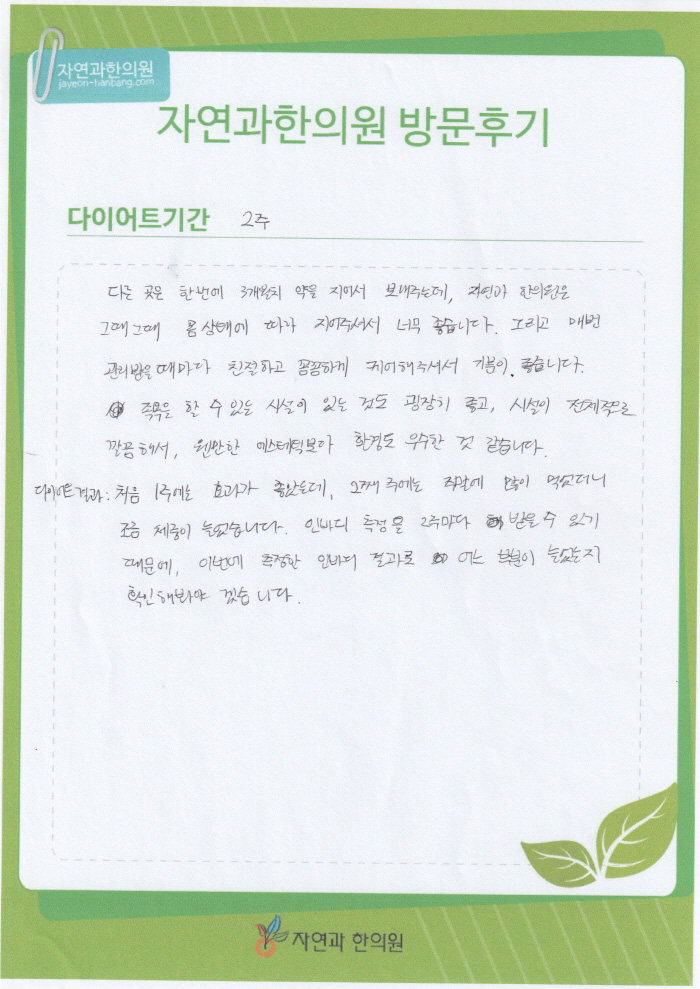 자연과한의원
jayeon-hanbang.com
자연과한의원 방문후기
다이어트기간 2주
다른 곳은 한번에 3개월치 약을 지어서 보내주는데, 자연과 한의원은
그때그때 몸상태에 따라 지어주셔서 너무 좋습니다. 그리고 매번
관리받을때마다 친절하고 꼼꼼하게 케어해주셔서 기분이 좋습니다.
족욕을 할 수 있는 시설이 있는 것도 굉장히 좋고, 시설이 전체적으로
깔끔해서, 웬만한 에스테틱보다 환경도 우수한 것 같습니다.
다이어트결과: 처음 1주에는 효과가 좋았는데, 2째 주에는 주말에 많이 먹었더니
조금 체중이 늘었습니다. 인바디 측정을 2주마다 받을 수 있기
때문에, 이번에 측정한 인바디 결과로 어느 부분이 늘었는지
확인해봐야 겠습니다.
자연과 한의원